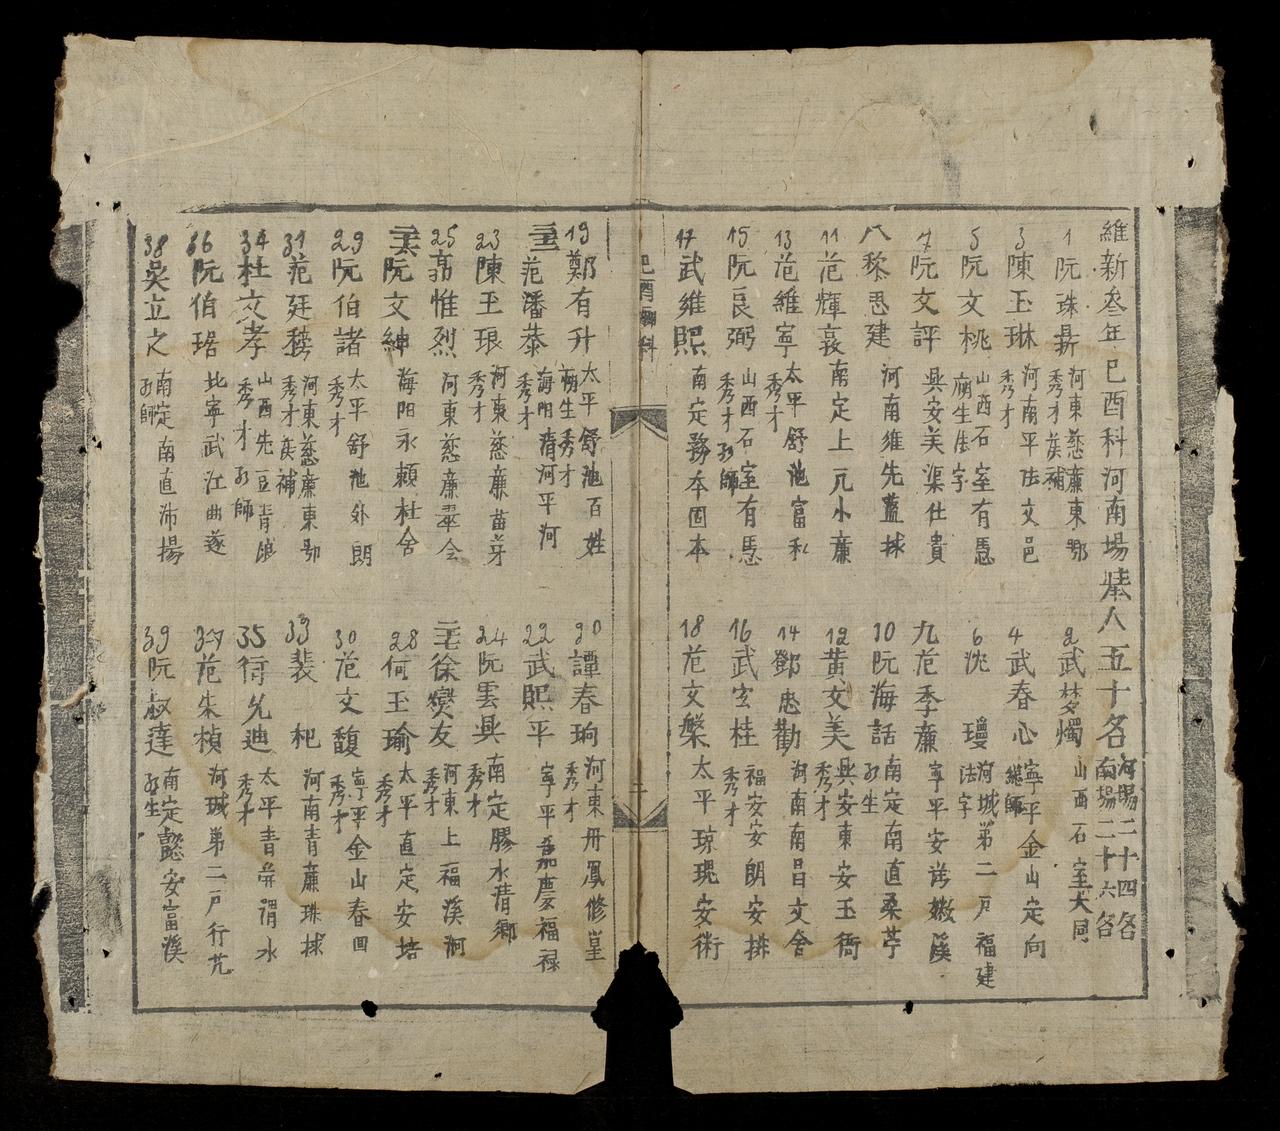 維新叁年己酉科河南場 人五十名 河場二十四名 南場二十六名
1 阮珠 河東慈廉東鄂 秀才 補
2 武梦燭 山西石室大同
3 陳玉琳 河南平 文邑 秀才
4 武春心 寧平金山定向
5 阮文桃 山西石室有 廟生法字
6 沈璦 河城第二戸福建 法字
7 阮文評 興安美渠仕貴
八 黎思建 河南維先藍球
九 范季廉 寧平安 嫩溪
10 阮海話 南定南直桑苧
11 范輝 南定上元小廉
12 黄文美 興安東安玉衙 秀才
13 范維寧 太平舒池富私 秀才
14 鄧忠勸 河南南昌文舍
15 阮良弼 山西石室有 秀才
16 武玄桂 福安安朗安排 秀才
17 武維熙 南定務本固本
18 范文槃 太平琼瑰安術
己酉 科
二
19 鄭有升 太平舒池百姓 廟生 秀才
20 譚春珦 河東丹鳳修堂 秀才
范潘恭 海陽清河平河 秀才
22 武熙平 寧平嘉慶福禄
23 陳玉琅 河東慈廉苗芽 秀才
24 阮雲興 南定膠水清鄉 秀才
25 惟烈 河東慈廉翠会
徐燮友 河東上福溪洞 秀才
阮文紳 海陽永頼杜舍
28 何玉瑜 太平直定安培 秀才
29 阮伯諸 太平舒池外朗 秀才
30 范文馥 寧平金山春回 秀才
31 范廷 河東慈廉東鄂 秀才 補
33 裴杞 河南青廉珠球
34 杜文孝 山西先豆青 秀才
35 允迪 太平青 謂水 秀才
36 阮伯琚 北寧武江曲遂
37 范朱楨 河城第二戸行芃
38 吳立之 南定南直沛揚
39 阮叔達 南定懿安富溪